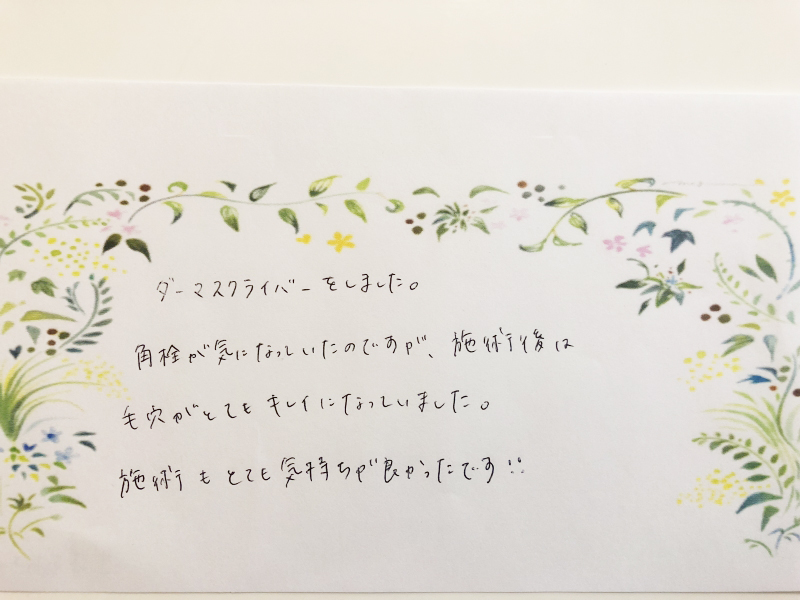 ダーマスクライバーをしました。
角栓が気になっていたのですが、施術後は
毛穴がとてもキレイになっていました。
施術もとても気持ちが良かったです!!